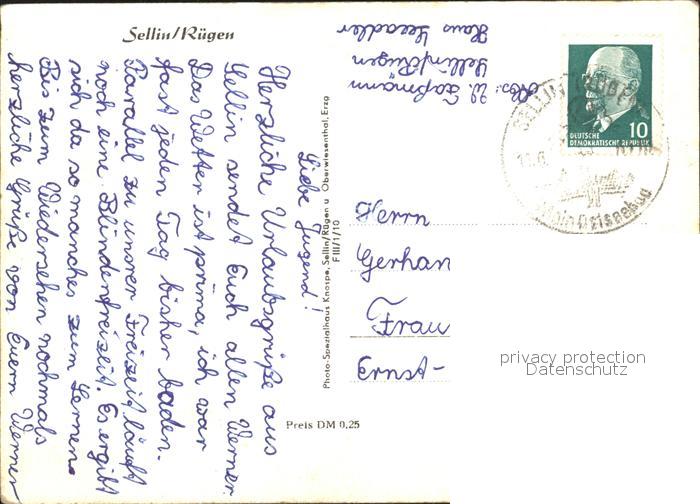 Sellin/Rügen
Liebe Jugend!
Herzliche Urlaubsgrüße aus
Sellin sendet Euch allen Werner.
Das Wetter ist prima, ich war
fast jeden Tag bisher baden.
Parallel zu unsrer Freizeit läuft
noch eine Blindenfreizeit. Es ergibt
sich da so manches zum Lernen.
Bis zum Wiedersehen nochmals
herzliche Grüße von Euerm Werner
Photo-Spezialhaus Knospe, Sellin/Rügen u Oberwiesenthal, Erzg
FIII/1/10
Preis DM 0,25
Abs: W.
Sellin/Rügen
Haus Seeadler
SELLIN (RÜGEN)
Ostseebad
10
DEUTSCHE
DEMOKRATISCHE REPUBLIK
Herrn
Gerhan
Frau
Ernst-
privacy protection
Datenschutz